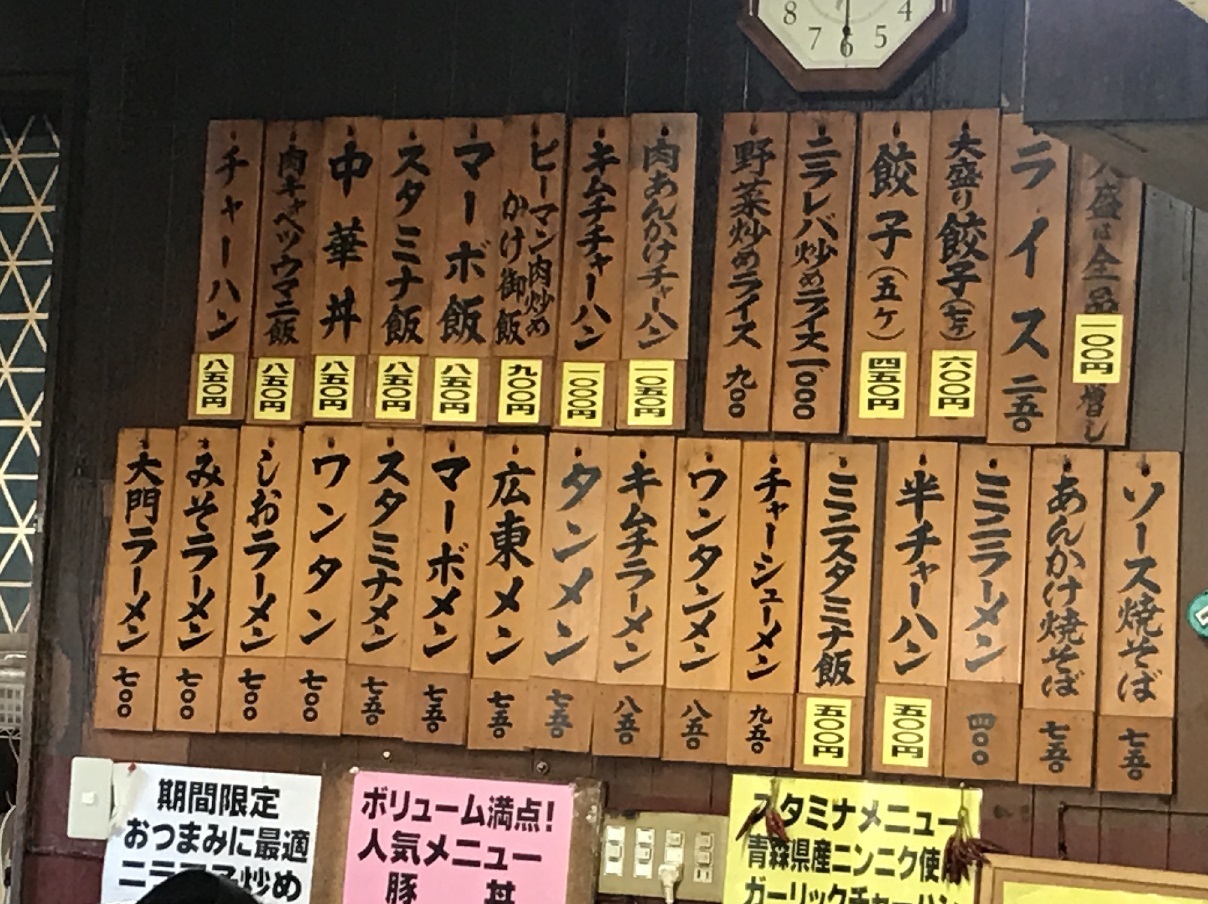 8 7 6 5 4
大盛は全品一〇〇円増し
ライス 二五〇
大盛り餃子(七ケ) 六〇〇円
餃子(五ケ) 四五〇円
ニラレバ炒めライス 一〇〇〇
野菜炒めライス 九〇〇
肉あんかけチャーハン 一〇五〇円
キムチチャーハン 一〇〇〇円
ピーマン肉炒め
かけ御飯 九〇〇円
マーボ飯 八五〇円
スタミナ飯 八五〇円
中華丼 八五〇円
肉キャベツウマニ飯 八五〇円
チャーハン 八五〇円
ソース焼そば 七五〇
あんかけ焼そば 七五〇
ミニラーメン 四〇〇
半チャーハン 五〇〇円
ミニスタミナ飯 五〇〇円
チャーシューメン 九五〇
ワンタンメン 八五〇
キムチラーメン 八五〇
タンメン 七五〇
広東メン 七五〇
マーボメン 七五〇
スタミナメン 七五〇
ワンタン 七〇〇
しおラーメン 七〇〇
みそラーメン 七〇〇
大門ラーメン 七〇〇
期間限定
おつまみに最適
ボリューム満点!
人気メニュー
豚 丼
スタミナメニュー
青森県産ニンニク使用
ガーリックチャーハン